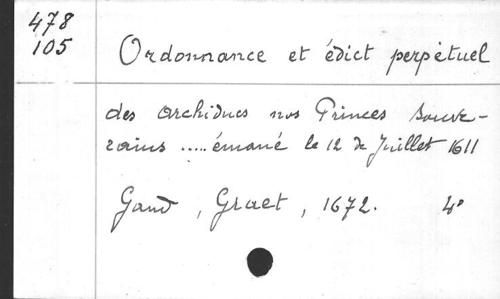 478
105
Ordonnance et édict perpétuel
des archiducs nos Princes Souve-
rains ..... émané le 12 de Juillet 1611
Gand, Graet, 1672. 4°